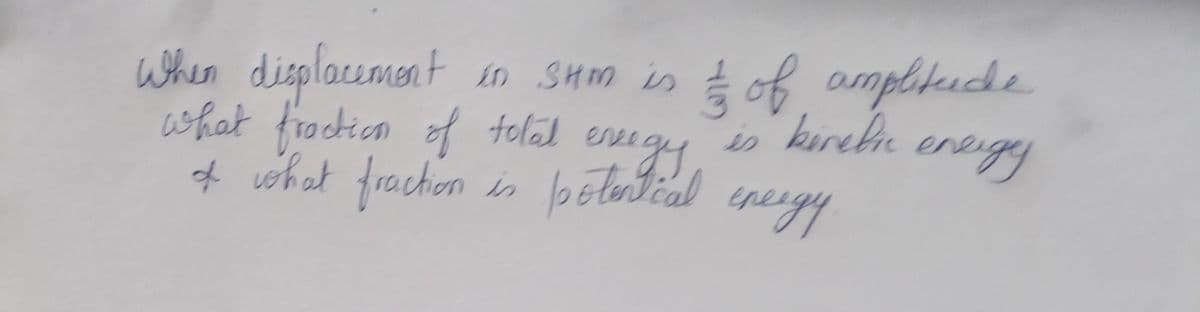 When displacement in SHM is 1/3 of amplitude
what fraction of total energy is kinetic energy
& what fraction is potential energy